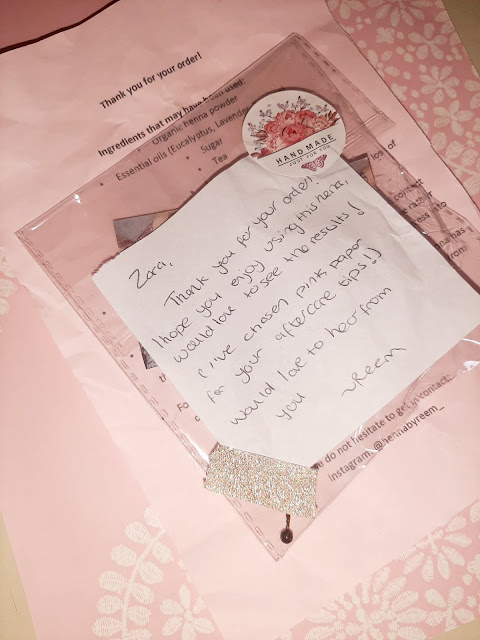 Thank you for your order!
Ingredients that may have been used:
Organic henna powder
Essential oils (Eucalyptus, Lavender
Sugar
Tea
HAND MADE
JUST FOR YOU
Zara,
Thank you for your order!!
I hope you enjoy using this hena,
would love to see the results!
(i've chosen pink paper
for your aftercare tips!!)
would love to hear from
you ~Reem
do not hesitate to get in contact:
Instagram: @hennabyreem_